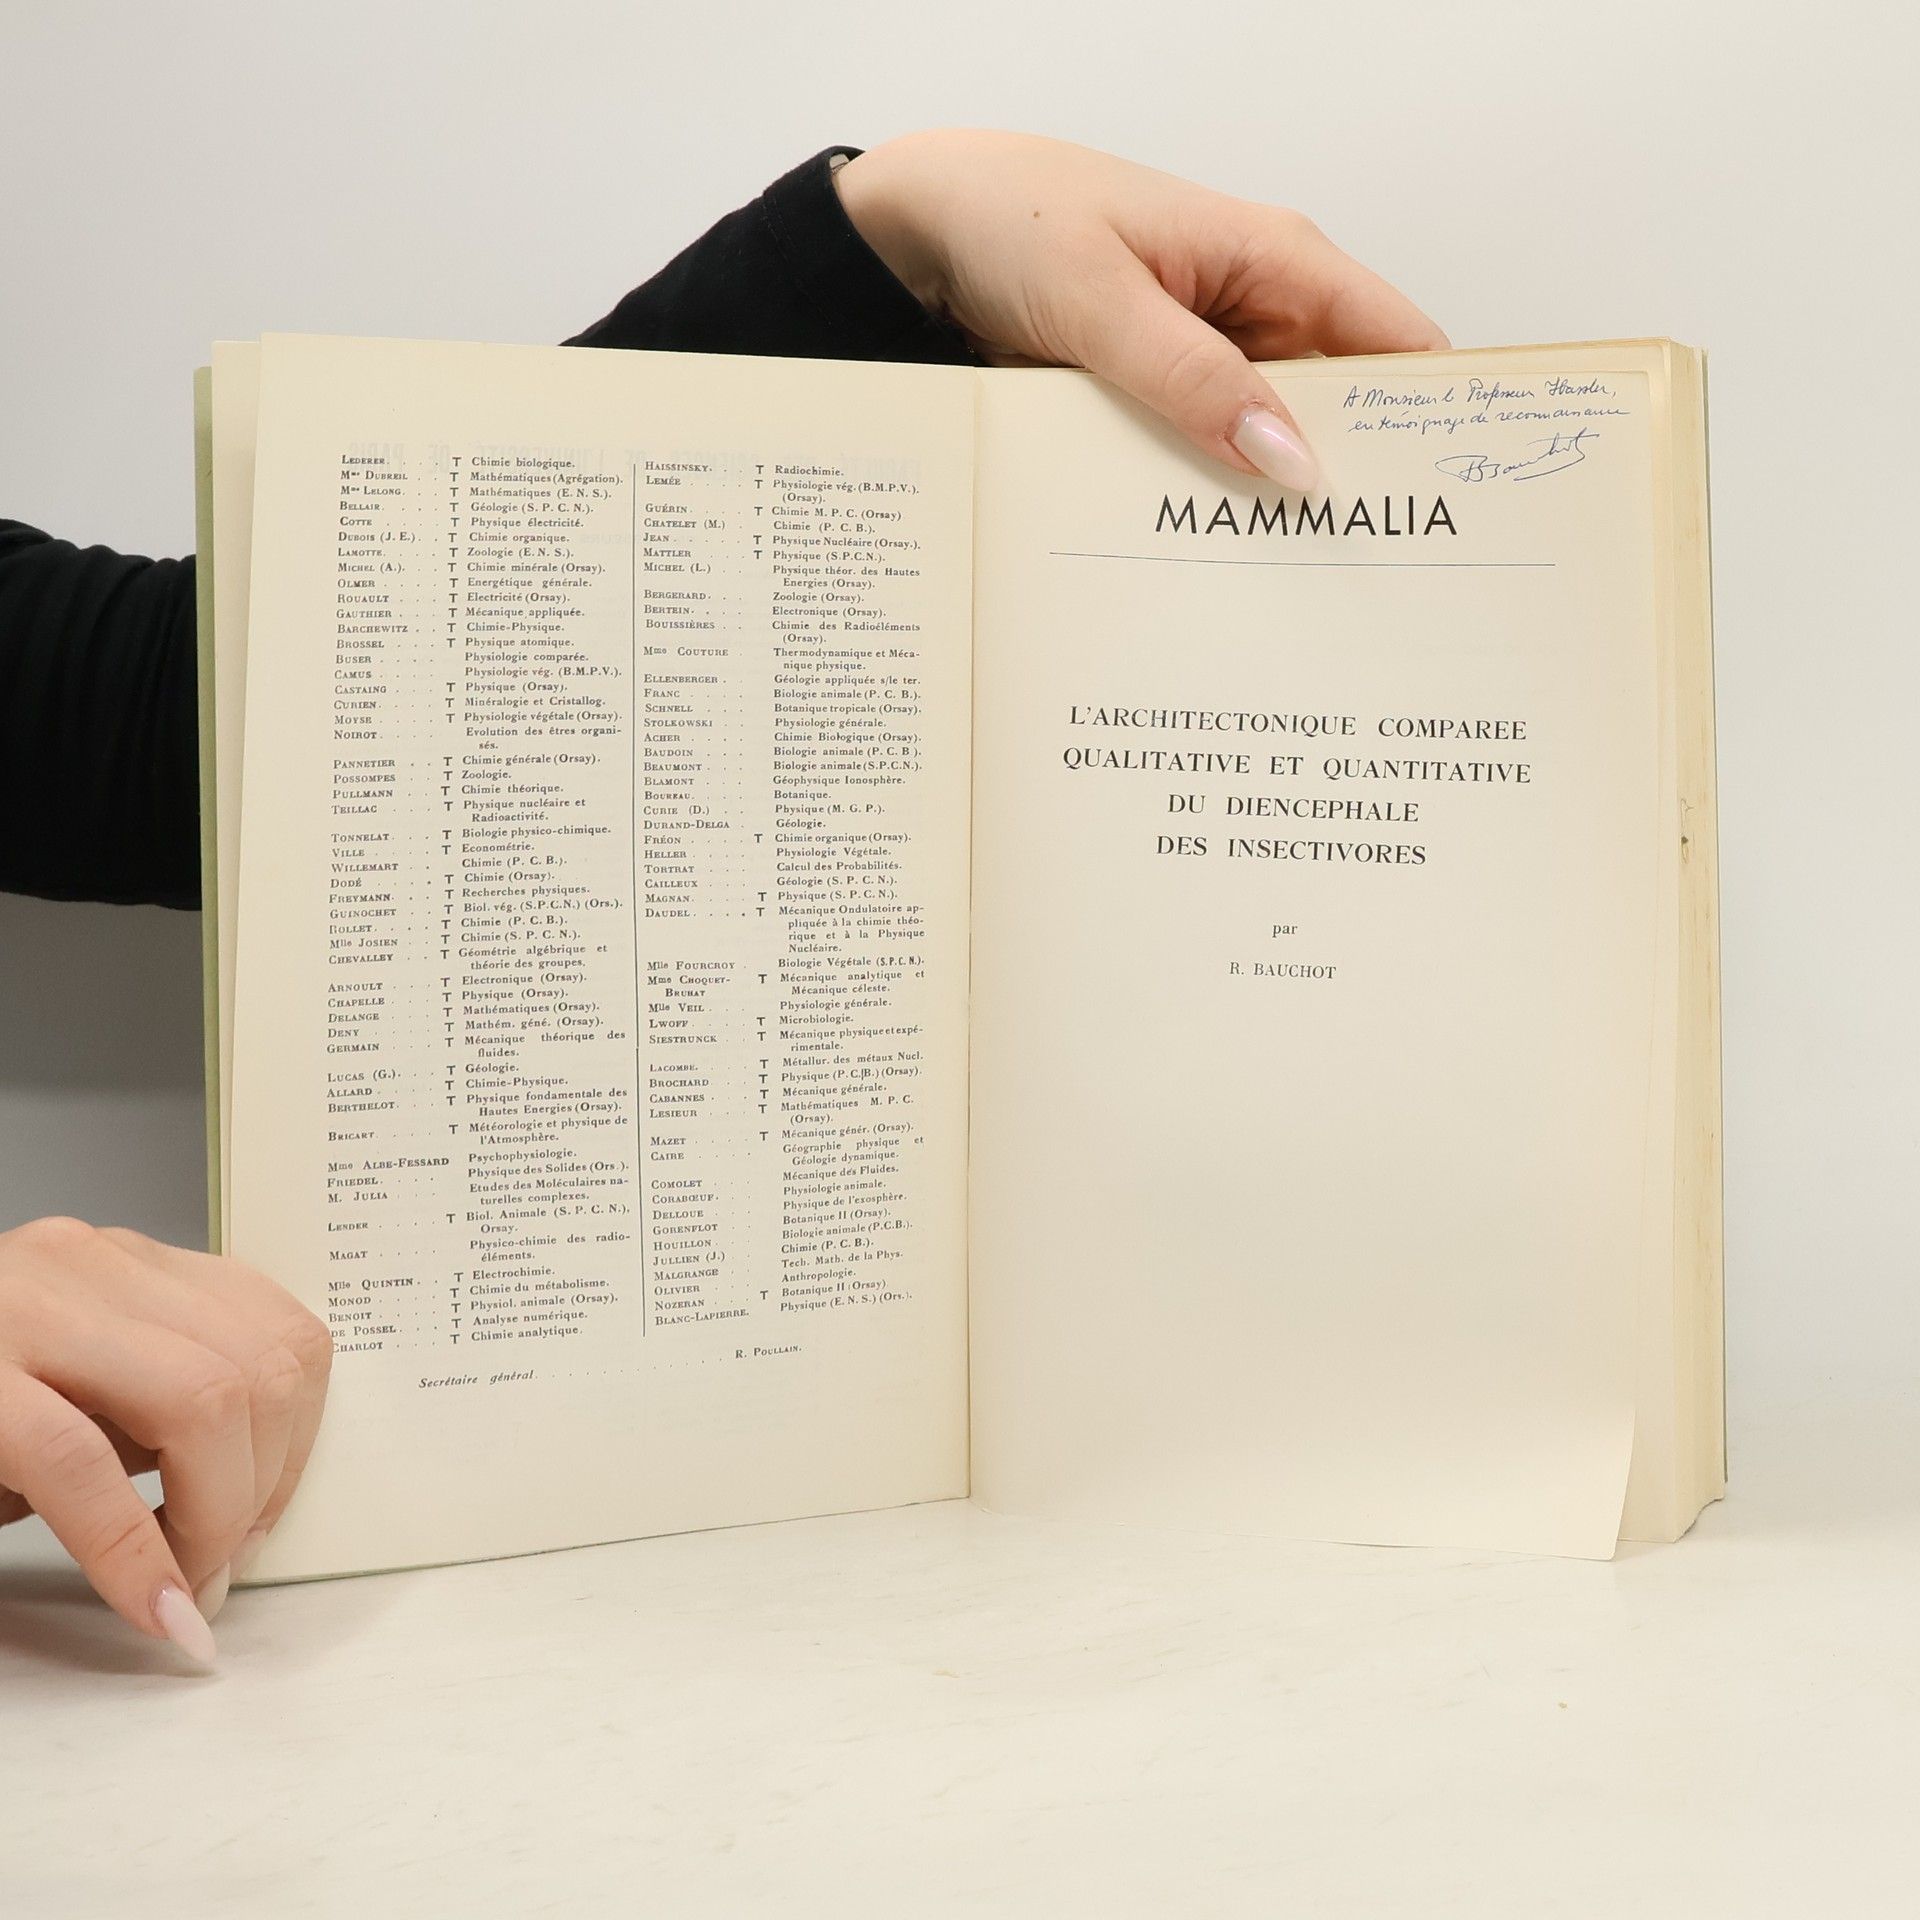 LEDERER. . . . T Chimie biologique.
Mme DUBREIL . . T Mathématiques (Agrégation).
Mme LELONG. . . T Mathématiques (E. N. S.).
BELLAIR. . . . T Géologie (S. P. C. N.).
COTTE . . . . T Physique électricité.
DUBOIS (J. E.). . T Chimie organique.
LAMOTTE. . . . T Zoologie (E. N. S.).
MICHEL (A.). . . T Chimie minérale (Orsay).
OLMER . . . . T Energétique générale.
ROUAULT . . . T Electricité (Orsay).
GAUTHIER . . . T Mécanique appliquée.
BARCHEWITZ . . T Chimie-Physique.
BROSSEL . . . T Physique atomique.
BUSER . . . . Physiologie comparée.
CAMUS . . . . Physiologie vég. (B.M.P.V.).
CASTAING . . . T Physique (Orsay).
CURIEN. . . . T Minéralogie et Cristallog.
MOYSE . . . . T Physiologie végétale (Orsay).
NOIROT. . . . Evolution des êtres organi-
sés.
PANNETIER . . T Chimie générale (Orsay).
POSSOMPES . . T Zoologie.
PULLMANN . . T Chimie théorique.
TEILLAC . . . T Physique nucléaire et
Radioactivité.
TONNELAT. . . T Biologie physico-chimique.
VILLE . . . . T Econométrie.
WILLEMART . . Chimie (P. C. B.).
DODÉ . . . . T Chimie (Orsay).
FREYMANN. . . T Recherches physiques.
GUINOCHET . . T Biol. vég. (S.P.C.N.) (Ors.).
ROLLET. . . . T Chimie (P. C. B.).
Mlle JOSIEN . . T Chimie (S. P. C. N.).
CHEVALLEY . . T Géométrie algébrique et
théorie des groupes.
ARNOULT . . . T Electronique (Orsay).
CHAPELLE . . . T Physique (Orsay).
DELANGE . . . T Mathématiques (Orsay).
DENY . . . . T Mathém. géné. (Orsay).
GERMAIN . . . T Mécanique théorique des
fluides.
LUCAS (G.). . . T Géologie.
ALLARD . . . . T Chimie-Physique.
BERTHELOT. . . T Physique fondamentale des
Hautes Energies (Orsay).
BRICART. . . . T Météorologie et physique de
l'Atmosphère.
Mme ALBE-FESSARD Psychophysiologie.
FRIEDEL. . . . Physique des Solides (Ors.).
M. JULIA . . . Etudes des Moléculaires na-
turelles complexes.
LENDER . . . . T Biol. Animale (S. P. C. N.),
Orsay.
MAGAT . . . . Physico-chimie des radio-
éléments.
Mlle QUINTIN. . T Electrochimie.
MONOD . . . . T Chimie du métabolisme.
BENOIT . . . . T Physiol. animale (Orsay).
DE POSSEL. . . T Analyse numérique.
CHARLOT . . . T Chimie analytique.
HAISSINSKY. . . T Radiochimie.
LEMÉE . . . . T Physiologie vég. (B.M.P.V.).
(Orsay).
GUÉRIN. . . . T Chimie M. P. C. (Orsay)
CHATELET (M.) . Chimie (P. C. B.).
JEAN . . . . . T Physique Nucléaire (Orsay.).
MATTLER . . . T Physique (S.P.C.N.).
MICHEL (L.) . . Physique théor. des Hautes
Energies (Orsay).
BERGERARD. . . Zoologie (Orsay).
BERTEIN. . . . Electronique (Orsay).
BOUISSIÈRES . . Chimie des Radioéléments
(Orsay).
Mme COUTURE . Thermodynamique et Méca-
nique physique.
ELLENBERGER . . Géologie appliquée s/le ter.
FRANC . . . . Biologie animale (P. C. B.).
SCHNELL . . . Botanique tropicale (Orsay).
STOLKOWSKI . . Physiologie générale.
ACHER . . . . Chimie Biologique (Orsay).
BAUDOIN . . . Biologie animale (P. C. B.).
BEAUMONT . . . Biologie animale (S.P.C.N.).
BLAMONT . . . Géophysique Ionosphère.
BOUREAU. . . . Botanique.
CURIE (D.) . . Physique (M. G. P.).
DURAND-DELGA . Géologie.
FRÉON . . . . T Chimie organique (Orsay).
HELLER . . . . Physiologie Végétale.
TORTRAT . . . Calcul des Probabilités.
CAILLEUX . . . Géologie (S. P. C. N.).
MAGNAN. . . . T Physique (S. P. C. N.).
DAUDEL. . . . T Mécanique Ondulatoire ap-
pliquée à la chimie théo-
rique et à la Physique
Nucléaire.
Mlle FOURCROY . Biologie Végétale (S.P.C.N.).
Mme CHOQUET- T Mécanique analytique et
BRUHAT Mécanique céleste.
Mlle VEIL . . . Physiologie générale.
LWOFF . . . . T Microbiologie.
SIESTRUNCK . . T Mécanique physique et expé-
rimentale.
LACOMBE. . . . T Métallur. des métaux Nucl.
BROCHARD . . . T Physique (P.C.B.) (Orsay).
CABANNES . . . T Mécanique générale.
LESIEUR . . . T Mathématiques M. P. C.
(Orsay).
MAZET . . . . T Mécanique génér. (Orsay).
CAIRE . . . . Géographie physique et
Géologie dynamique.
COMOLET . . . Mécanique des Fluides.
CORABŒUF. . . Physiologie animale.
DELLOUE . . . Physique de l'exosphère.
GORENFLOT . . Botanique II (Orsay).
HOUILLON . . . Biologie animale (P.C.B.).
JULLIEN (J.) . . Chimie (P. C. B.).
MALGRANGE . . Tech. Math. de la Phys.
OLIVIER . . . Anthropologie.
NOZERAN . . . T Botanique II (Orsay)
BLANC-LAPIERRE. Physique (E. N. S.) (Ors.).
Secrétaire général. . . . . . . . . . R. POULLAIN.
A Monsieur le Professeur Hassler,
en témoignage de reconnaissance
RBauchot
MAMMALIA
L'ARCHITECTONIQUE COMPAREE
QUALITATIVE ET QUANTITATIVE
DU DIENCEPHALE
DES INSECTIVORES
par
R. BAUCHOT